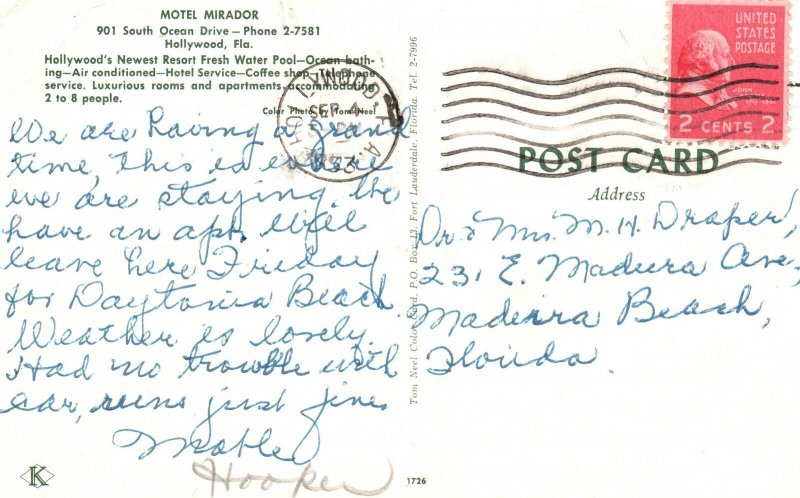 MOTEL MIRADOR
901 South Ocean Drive — Phone 2-7581
Hollywood, Fla.
Hollywood's Newest Resort Fresh Water Pool—Ocean bath-
ing—Air conditioned—Hotel Service—Coffee shop—Telephone
service. Luxurious rooms and apartments accommodating
2 to 8 people.
Color Photo by Tom Neel
We are having a grand
time, this is where
we are staying. We
have an apt. Will
leave here Friday
for Daytona Beach
Weather is lovely.
Had no trouble with
car, runs just fine.
Mable
Hooper
K
Tom Neel Color Card, P.O. Box 13, Fort Lauderdale, Florida. Tel. 2-7996
1726
HOLLYWOOD FLA.
SEP 4
PM
1953
UNITED
STATES
POSTAGE
JOHN
2 CENTS 2
POST CARD
Address
Dr & Mrs. M. H. Draper,
231 E. Madeira Ave,
Madeira Beach,
Florida.